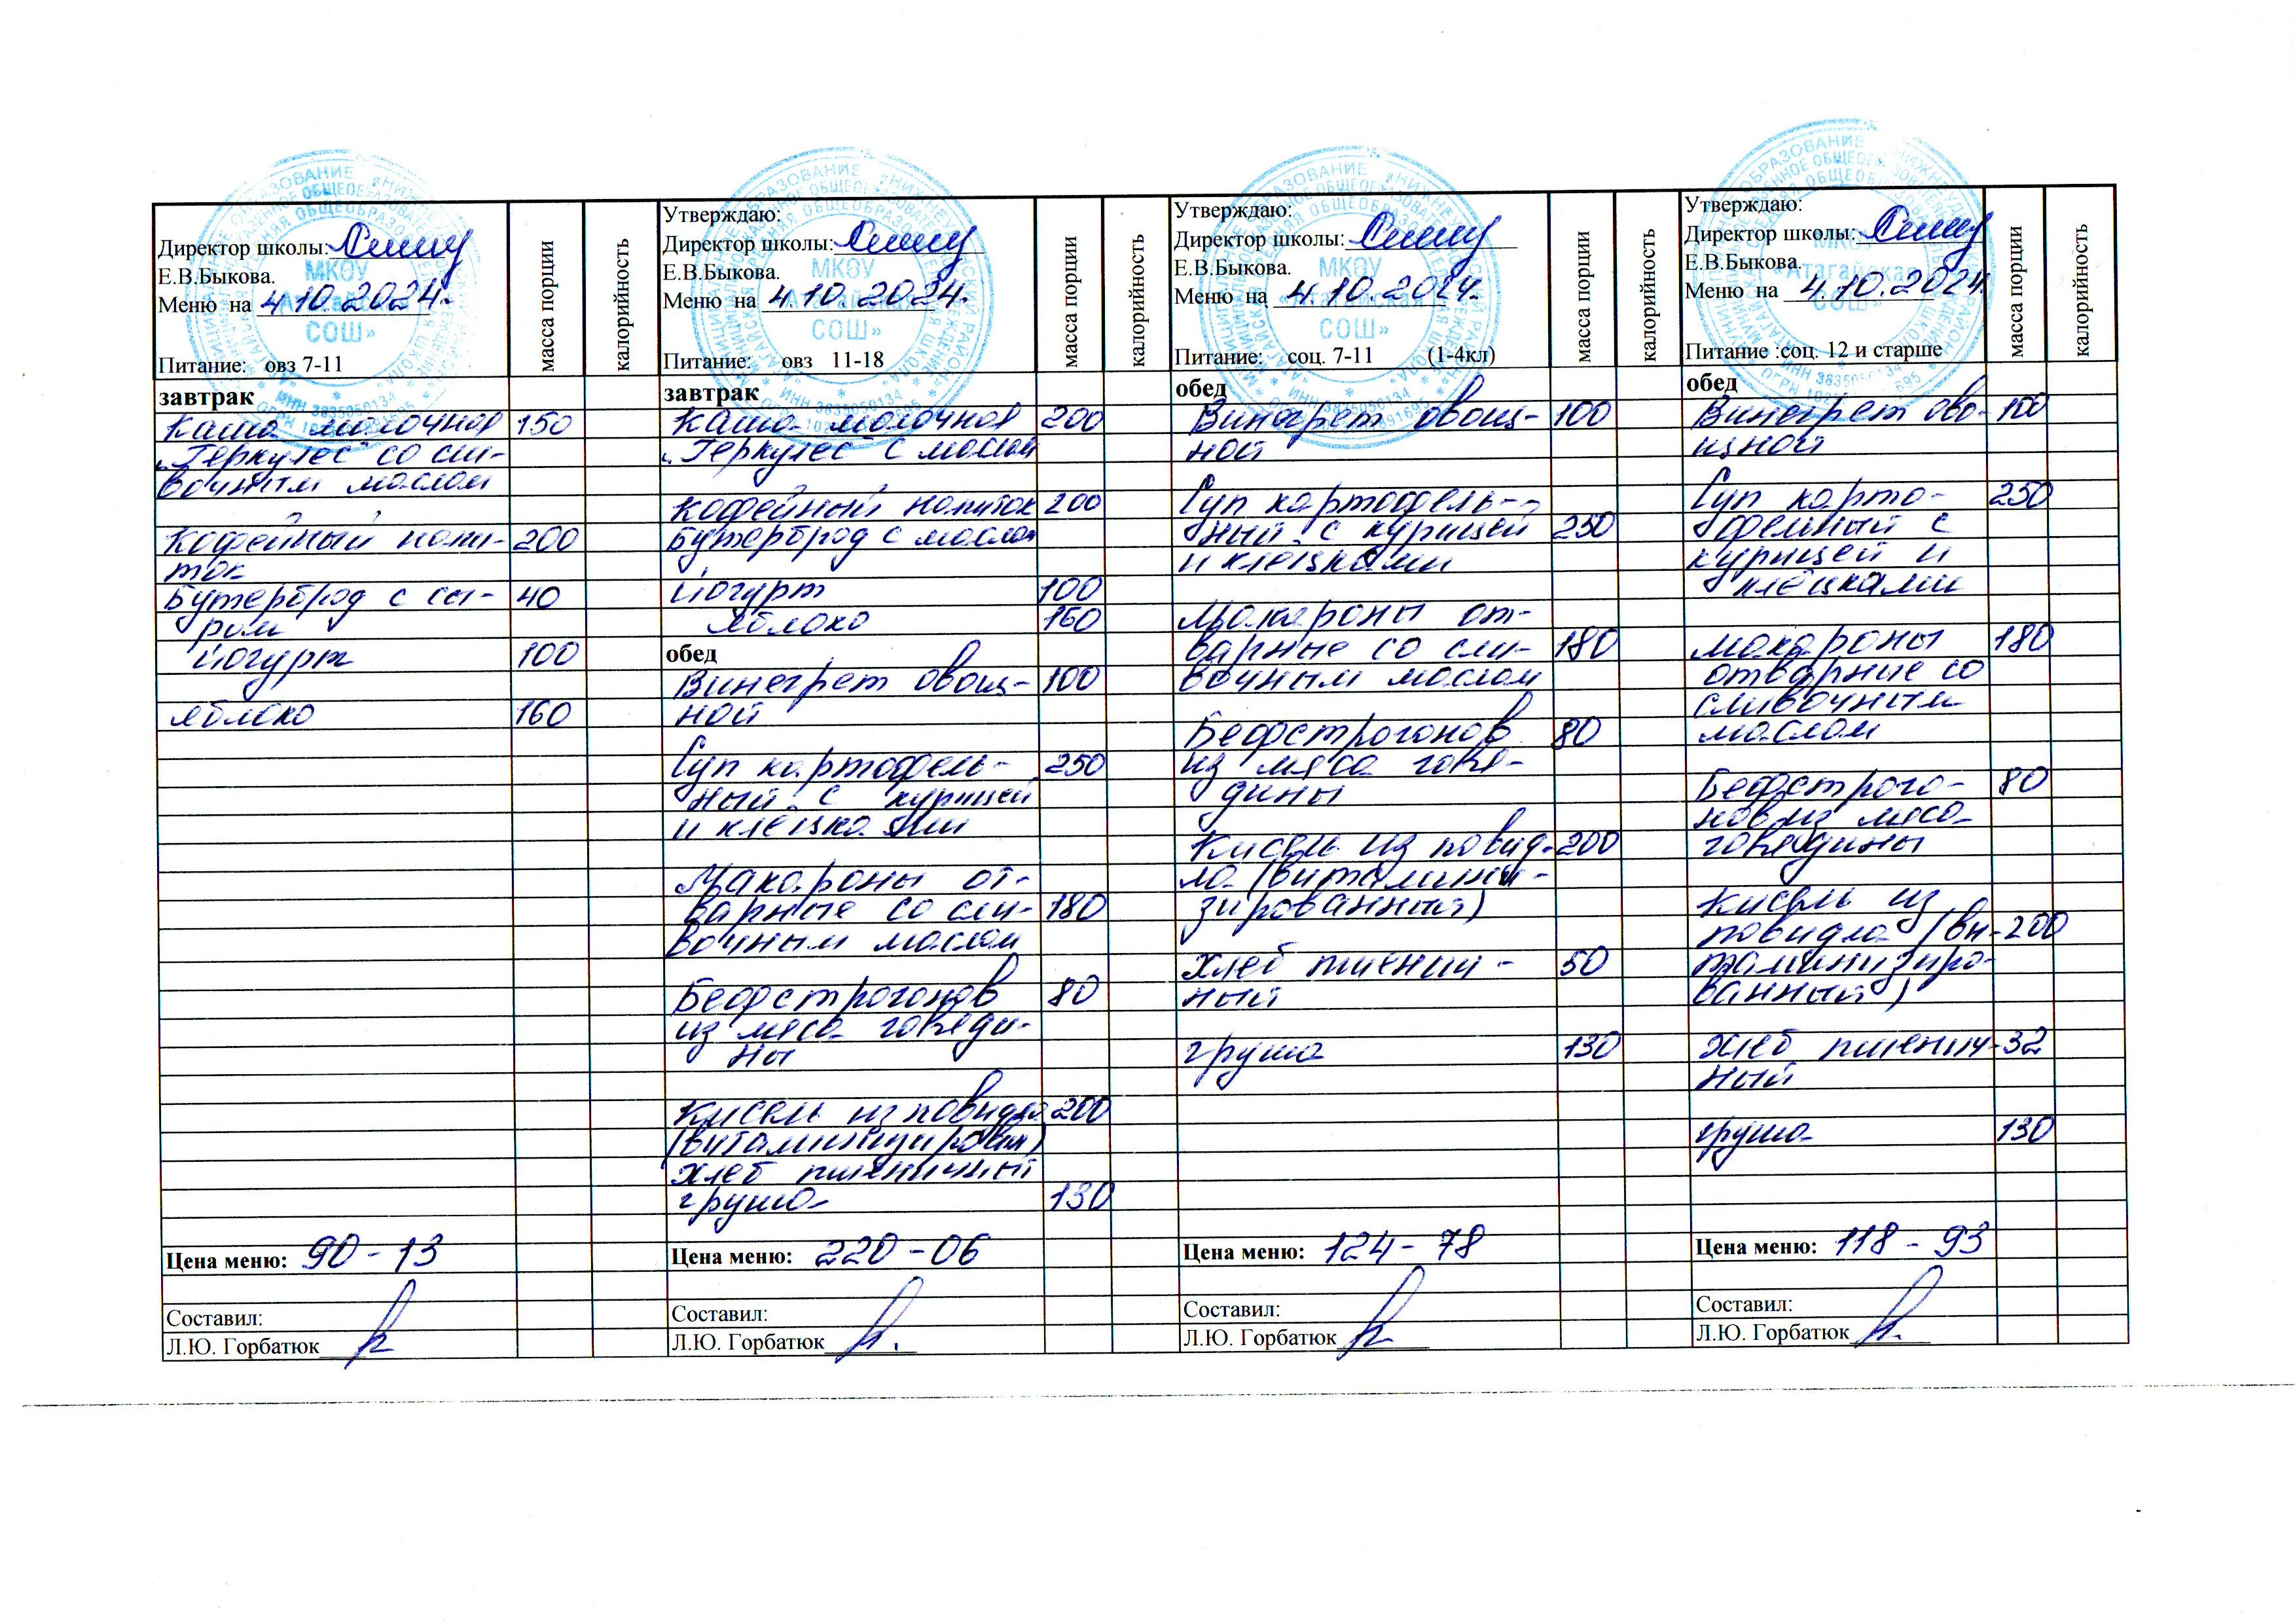 Директор школы:
Е.В.Быкова.
Меню на 4.10.2024.
Питание: овз 7-11
масса порции
калорийность
завтрак
Каша молочная 150
„Геркулес" со сли-
вочным маслом
Кофейный напи- 200
ток
Бутерброд с сы- 40
ром
йогурт 100
яблоко 160
Цена меню: 90-13
Составил:
Л.Ю. Горбатюк
Утверждаю:
Директор школы:
Е.В.Быкова.
Меню на 4.10.2024.
Питание: овз 11-18
масса порции
калорийность
завтрак
Каша молочная 200
„Геркулес" с маслом
Кофейный напиток 200
Бутерброд с маслом
йогурт 100
яблоко 160
обед
Винегрет овощ- 100
ной
Суп картофель- 250
ный с курицей
и клёцками
Макароны от-
варные со сли- 180
вочным маслом
Бефстрогонов 80
из мяса говяди-
ны
Кисель из повидла 200
(витаминизирован)
хлеб пшеничный
груша 130
Цена меню: 220-06
Составил:
Л.Ю. Горбатюк
Утверждаю:
Директор школы:
Е.В.Быкова.
Меню на 4.10.2024.
Питание: соц. 7-11 (1-4кл)
масса порции
калорийность
обед
Винегрет овощ- 100
ной
Суп картофель-
ный с курицей 250
и клёцками
Макароны от-
варные со сли- 180
вочным маслом
Бефстрогонов 80
из мяса говя-
дины
Кисель из повид- 200
ла (витамини-
зированный)
хлеб пшенич- 50
ный
груша 130
Цена меню: 124-78
Составил:
Л.Ю. Горбатюк
Утверждаю:
Директор школы:
Е.В.Быкова.
Меню на 4.10.2024.
Питание :соц. 12 и старше
масса порции
калорийность
обед
Винегрет ово- 100
щной
Суп карто- 250
фельный с
курицей и
клёцками
макароны 180
отварные со
сливочным
маслом
Бефстрого- 80
нов из мяса
говядины
Кисель из
повидла (ви- 200
таминизиро-
ванный)
хлеб пшенич- 32
ный
груша 130
Цена меню: 118-93
Составил:
Л.Ю. Горбатюк
МКОУ
«Атагайская
СОШ»